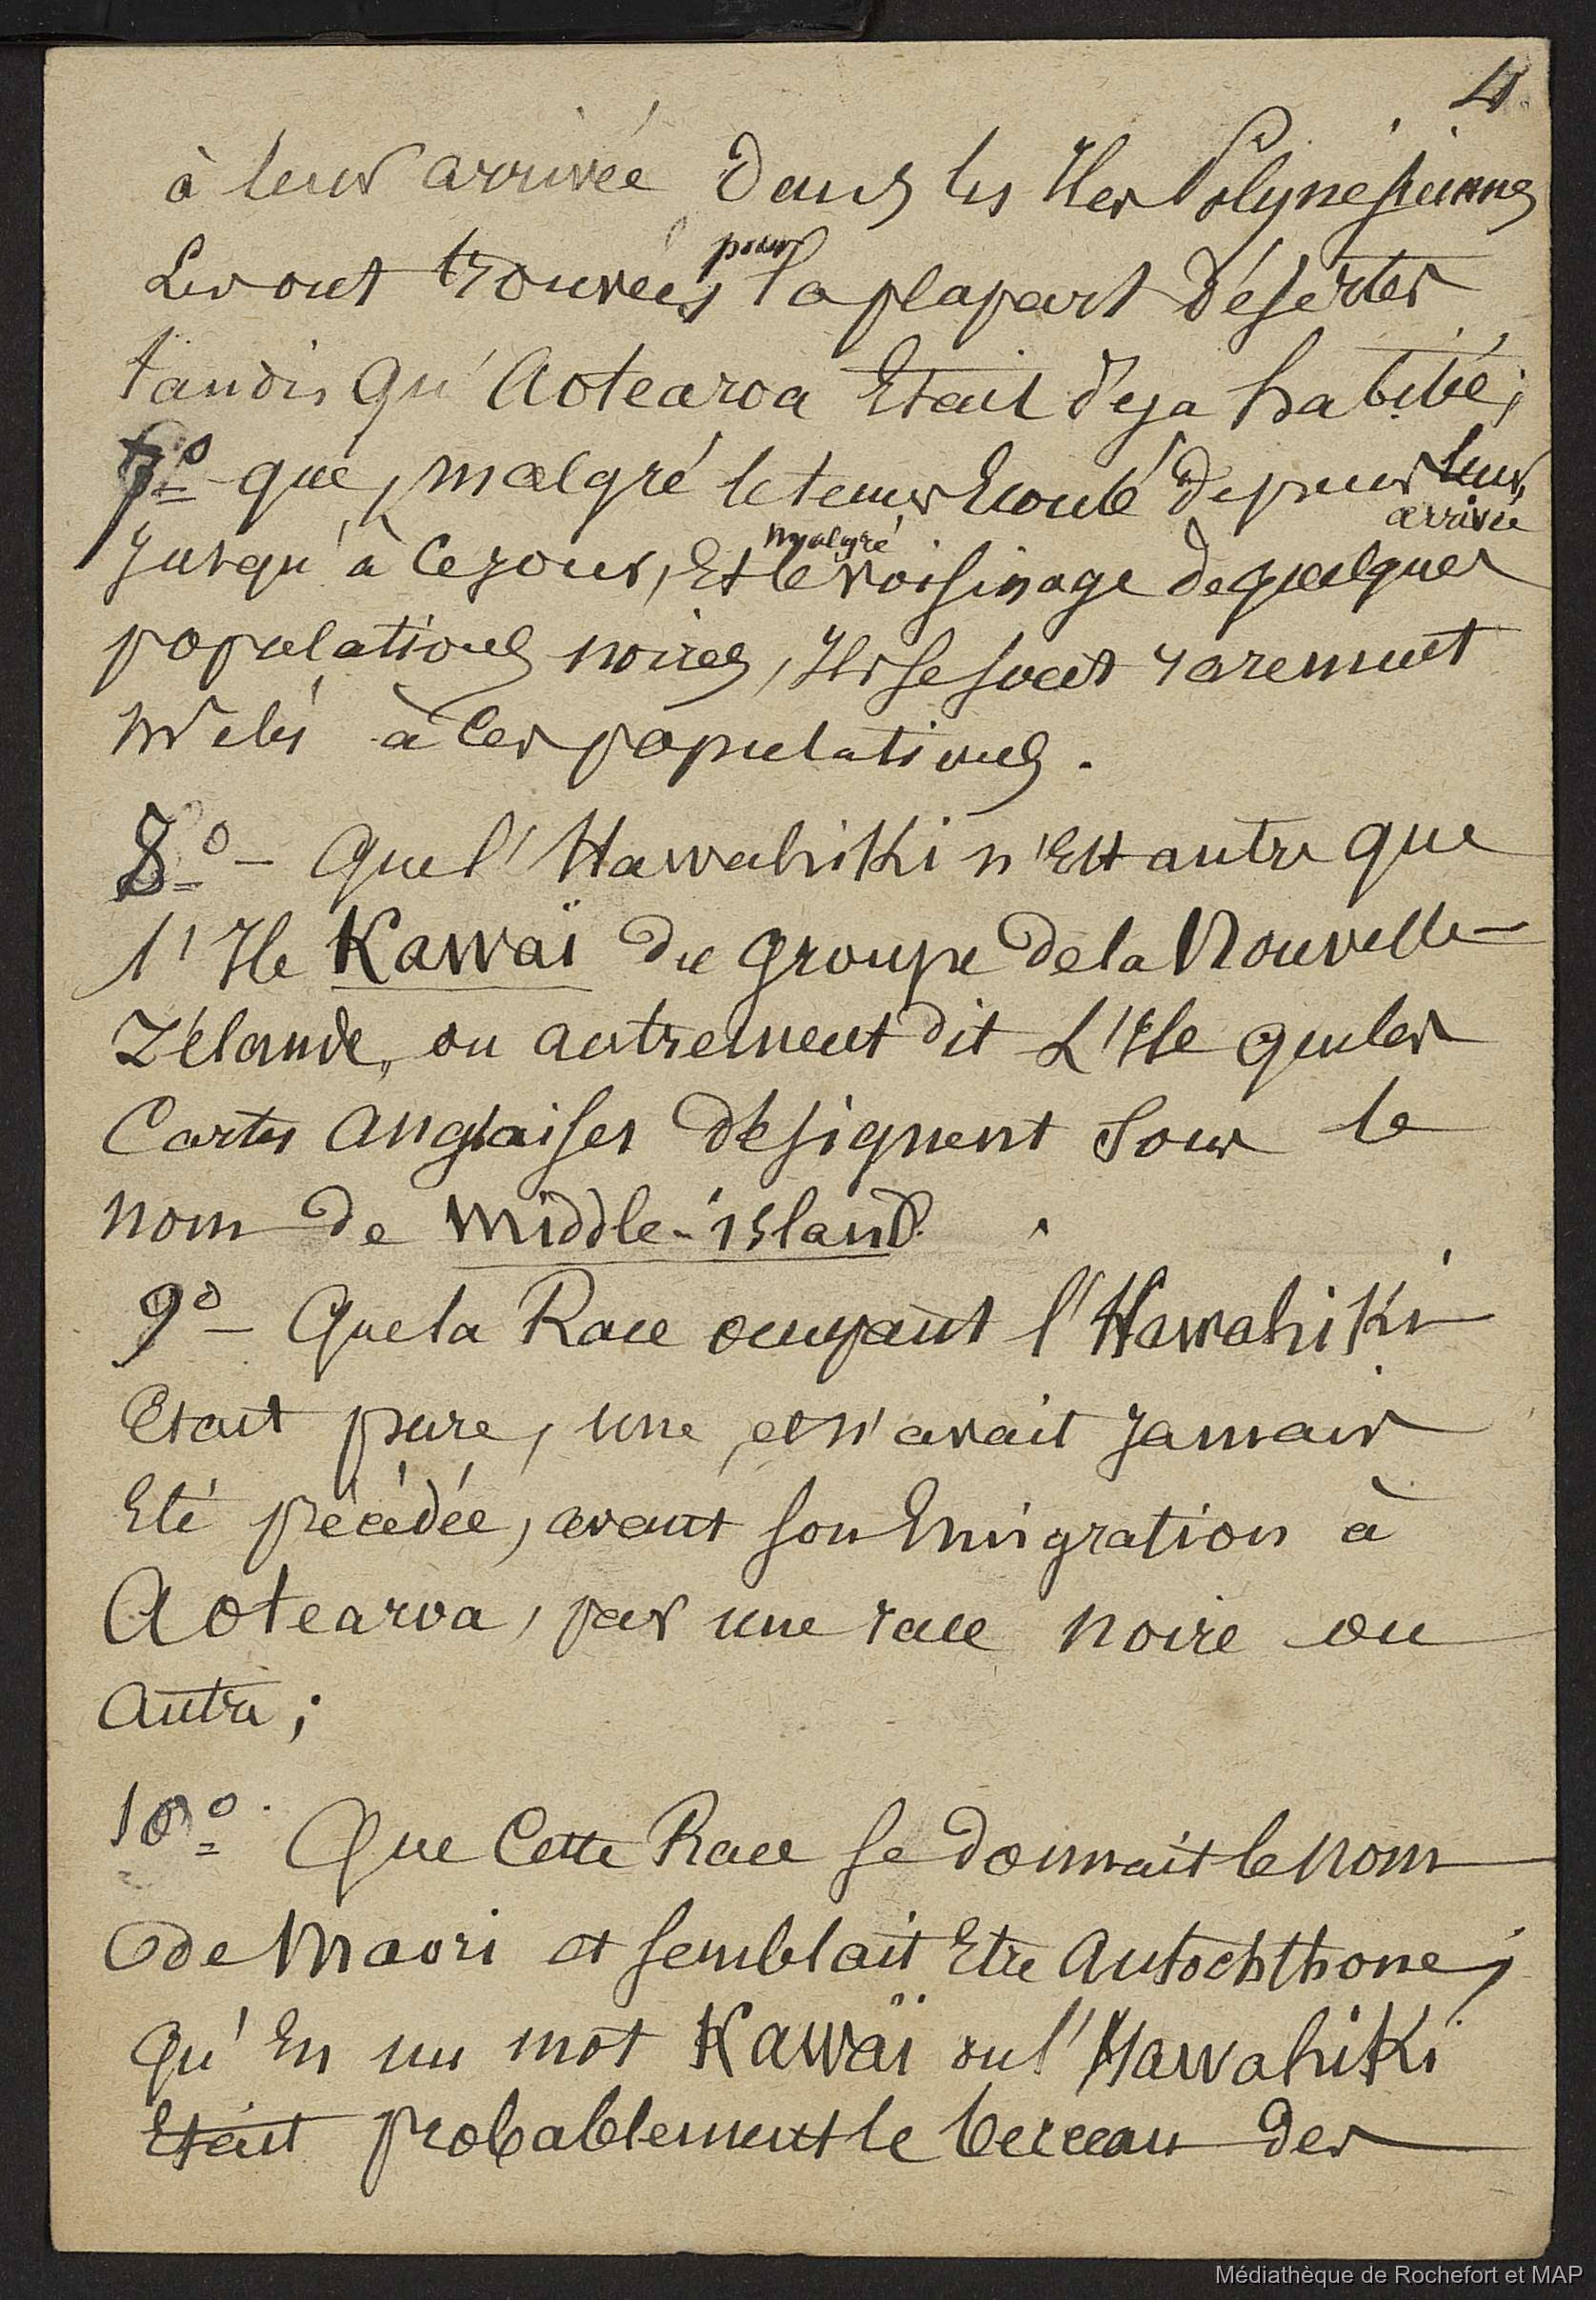 4
à leur arrivée dans les Iles Polynésiennes
Les ont trouvées pour la plapart désertes
tandis qu'Aotearoa Etait déja habitée;
7º que, malgré le temps Ecoulé depuis leur arrivée
jusqu'à ce jour, Et malgré le voisinage de quelques
populations noires, Ils se sont rarement
mêlés à ces populations.
8º - Que l'Hawahiki n'Est autre que
l'Ile Kawaï du groupe de la Nouvelle-
Zélande, ou autrement dit L'Ile que les
Cartes Anglaises désignent sous le
nom de middle-island.
9º - Que la Race occupant l'Hawahiki
Etait pure, une, et n'avait jamais
Eté précédée, avant son Emigration à
Aotearoa, par une race noire ou
autre;
10º. Que Cette Race se donnait le nom
de Maori et semblait Etre Autochthone;
qu'En un mot Kawaï ou l'Hawahiki
Etait probablement le berceau des
Médiathèque de Rochefort et MAP